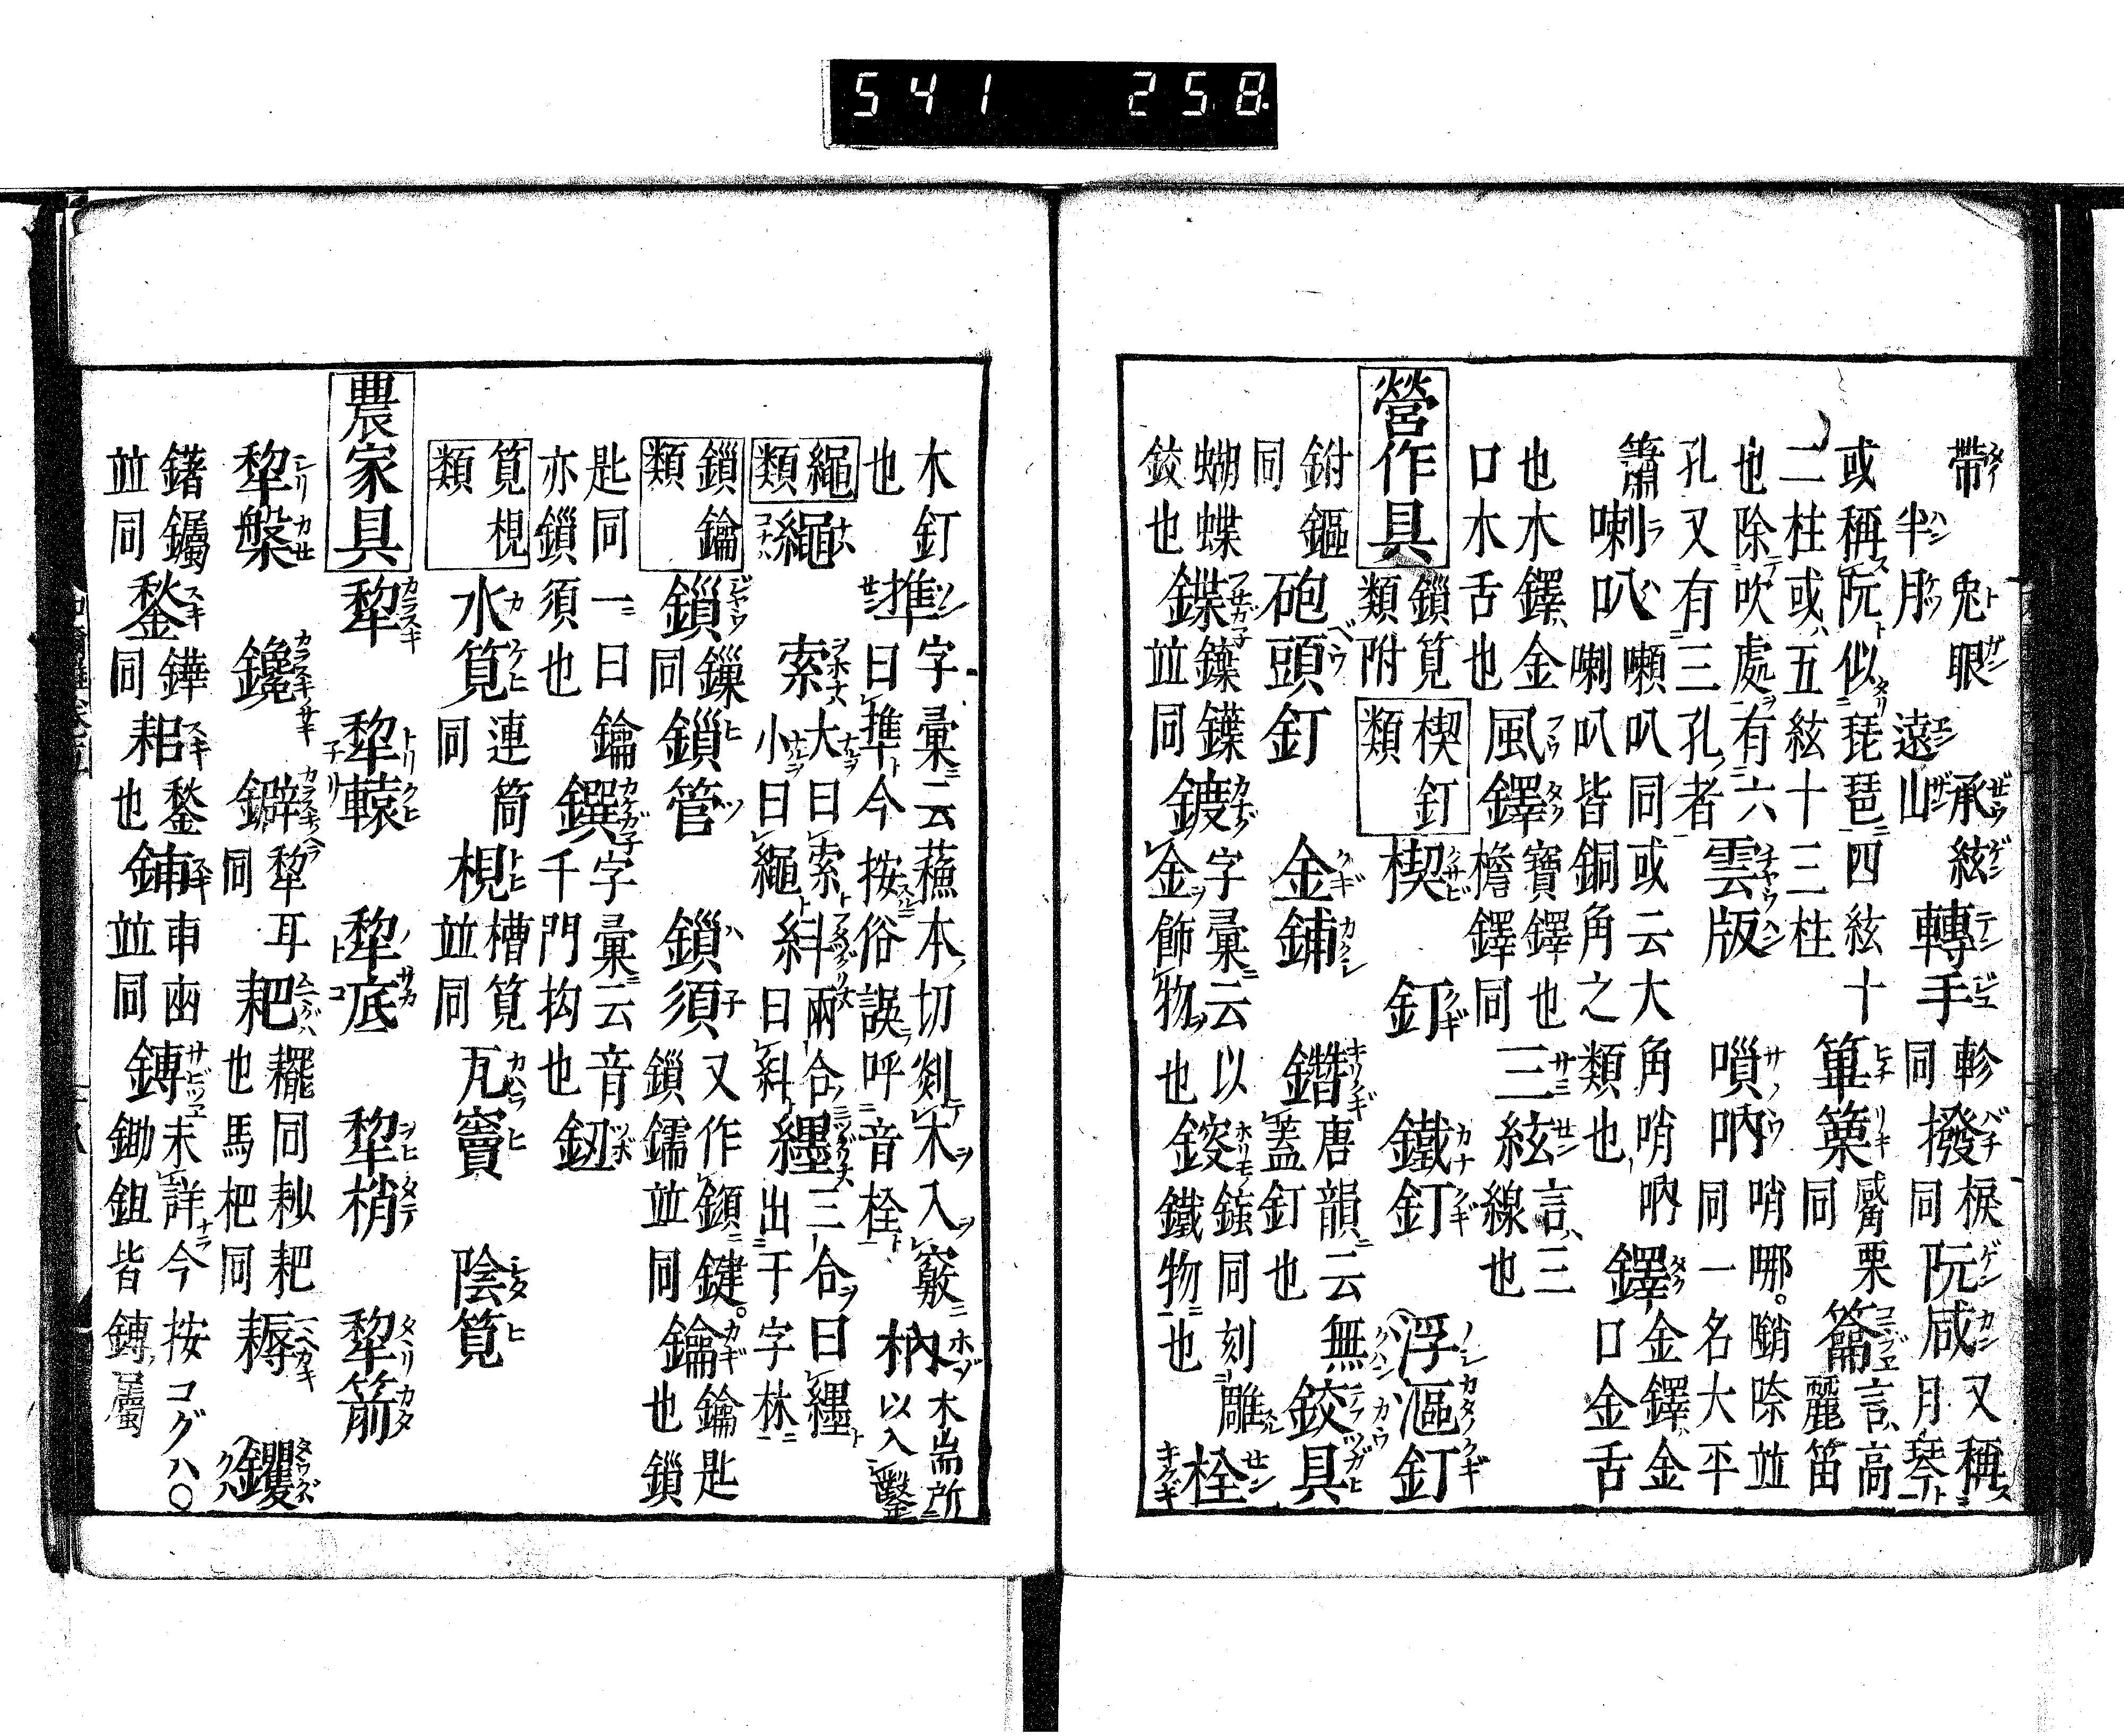 541 258
帶 兎眼 承絃 軫 棙 又稱
半月 遠山 轉手 同 撥 同 阮咸 月琴
或稱阮似琵琶四絃十 觱栗 言高
二柱或五絃十三柱 篳篥 同 籥 麗笛
也除吹處有六 哨哪 嘮 㗒 並
孔又有三孔者 雲版 嗩吶 同 一名大平
簫 嚩叭同或云大角哨吶 金鐸金
喇叭 喇叭皆銅角之類也 鐸 口金舌
也木鐸金 寶鐸也 言三
口木舌也 風鐸 檐鐸同 三絃 線也
營作具 鎖筧類附
楔釘類 楔 釘 鐵釘 浮漚釘
鉜鏂 唐韻云無
同 砲頭釘 金鋪 鐕 蓋釘也 鉸具
蝴蝶 鏶鐷 字彙云以 鎹同刻雕
鉸也 鍱 並同 鍍 金飾物也 錽 鐵物也 栓
木釘 字彙云蘸本切剡木入竅 木耑所
也 準 曰準今按俗誤呼音栓 枘 以入鑿
繩類 繩 索 大曰索 糾 兩合 纆 三合曰纆
小曰繩 曰糾 出于字林
鎖鑰 鏁 又作鎖鍵 鑰匙
類 鎖 同 鎖管 鎖須 鎖鑐並同 鑰 也鎖
匙同一曰鑰 字彙云音
亦鎖須也 鏆 千門抅也 釰
筧梘 連筒 槽筧
類 水筧 同 梘 並同 瓦竇 陰筧
農家具 犂 犂轅 犂底 犂梢 犂箭
犂槃 鑱 鐴 犂耳 耙 䎱同耖耙
同 也馬杷同 耨 钁
鐯钃 鏵 鍫 臿 耒詳今按コグハ○
並同 鍫 同 耜 也 鋪 並同 鎛 鋤鉏皆鎛屬